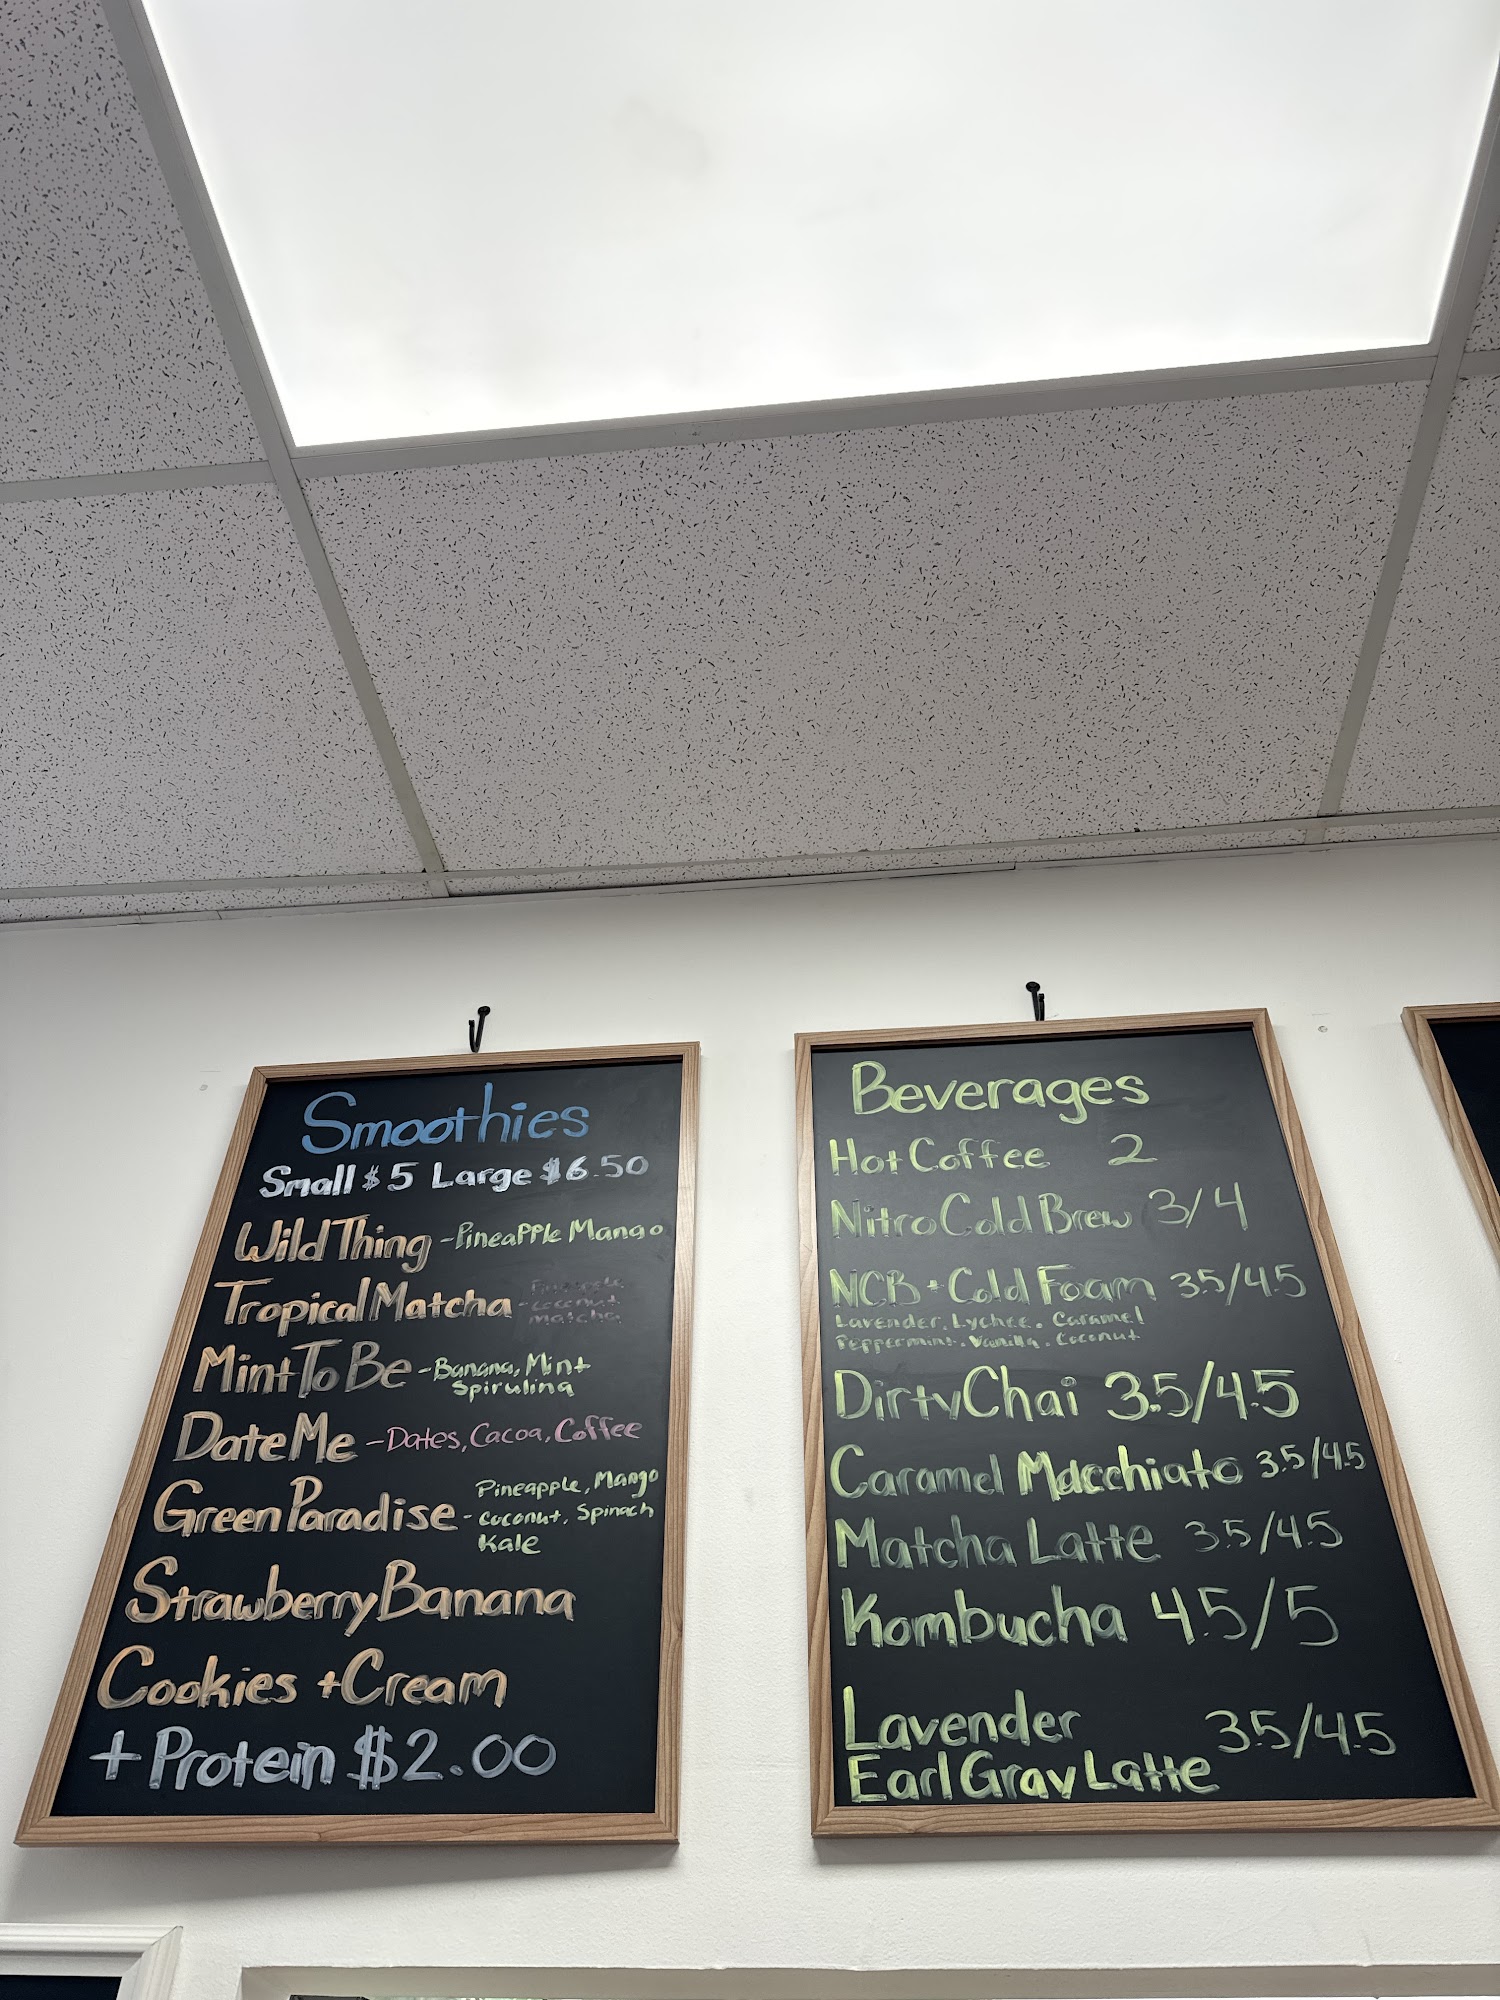 Smoothies
Small $5 Large $6.50
Wild Thing - Pineapple Mango
Tropical Matcha - Pineapple
coconut
matcha
Mint To Be - Banana, Mint
Spirulina
Date Me - Dates, Cacoa, Coffee
Green Paradise - Pineapple, Mango
coconut, Spinach
Kale
Strawberry Banana
Cookies + Cream
+ Protein $2.00
Beverages
Hot Coffee 2
Nitro Cold Brew 3/4
NCB + Cold Foam 3.5/4.5
Lavender. Lychee. Caramel
Peppermint. Vanilla. Coconut
Dirty Chai 3.5/4.5
Caramel Macchiato 3.5/4.5
Matcha Latte 3.5/4.5
Kombucha 4.5/5
Lavender
Earl Gray Latte 3.5/4.5